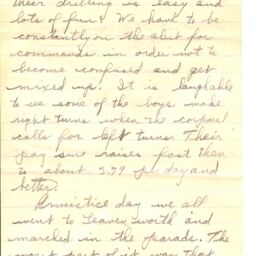 their drilling is easy and
lots of fun. We have to be
constantly on the alert for
commands in order not to
become confused and get
mixed up. It is laughable
to see some of the boys make
right turns when the corporal
calls for left turns. Their
pay raises fast then
to about 2.79 per day and
better.
Armistice day we all
went to Leavenworth and
marched in the parade. The
part of it was that